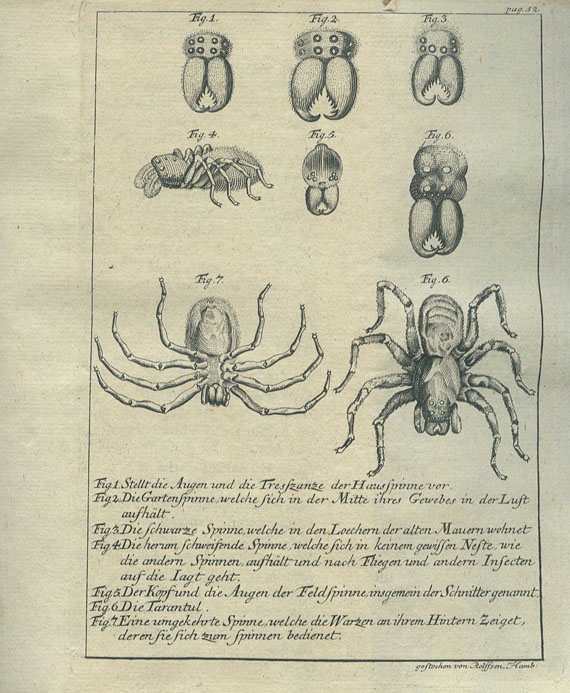 pag. 52.
Fig. 1.
Fig. 2.
Fig. 3
Fig. 4.
Fig. 5.
Fig. 6.
Fig. 7.
Fig. 6.
Fig. 1. Stellt die Augen und die Tresszanze der Hausspinne vor.
Fig. 2. Die Gartenspinne, welche sich in der Mitte ihres Gewebes in der Luft
aufhält.
Fig. 3. Die schwarze Spinne, welche in den Loechern der alten Mauern wohnet
Fig. 4. Die herum schweifende Spinne, welche sich in keinem gewissen Neste, wie
die andern Spinnen, aufhält und nach Fliegen und andern Insecten
auf die Iagt geht.
Fig. 5. Der Kopf und die Augen der Feldspinne, insgemein der Schnitter genannt.
Fig. 6. Die Tarantul.
Fig. 7. Eine umgekehrte Spinne, welche die Warzen an ihrem Hintern Zeiget,
deren sie sich zum spinnen bedienet.
gestochen von Rolffsen. Hamb.